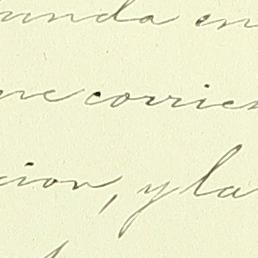 unda en
ne corrien
cion, y la